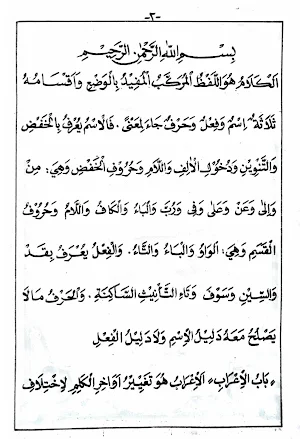 -٣-
بِسْمِ اللهِ الرَّحْمٰنِ الرَّحِيْمِ
اَلْكَلَامُ هُوَ اللَّفْظُ الْمُرَكَّبُ الْمُفِيْدُ بِالْوَضْعِ وَاَقْسَامُهُ
ثَلَاثَةٌ اِسْمٌ وَفِعْلٌ وَحَرْفٌ جَاءَ لِمَعْنًى. فَالْاِسْمُ يُعْرَفُ بِالْخَفْضِ
وَالتَّنْوِيْنِ وَدُخُوْلِ الْاَلِفِ وَاللَّامِ وَحُرُوْفِ الْخَفْضِ وَهِيَ: مِنْ
وَاِلٰى وَعَنْ وَعَلٰى وَفِى وَرُبَّ وَالْبَاءُ وَالْكَافُ وَاللَّامُ وَحُرُوْفُ
الْقَسَمِ وَهِيَ: اَلْوَاوُ وَالْبَاءُ وَالتَّاءُ. وَالْفِعْلُ يُعْرَفُ بِقَدْ
وَالسِّيْنِ وَسَوْفَ وَتَاءِ التَّأْنِيْثِ السَّاكِنَةِ. وَالْحَرْفُ مَالَا
يَصْلُحُ مَعَهُ دَلِيْلُ الْاِسْمِ وَلَا دَلِيْلُ الْفِعْلِ
«بَابُ الْاِعْرَابِ» اَلْاِعْرَابُ هُوَ تَغْيِيْرُ اَوَاخِرِ الْكَلِمِ لِاخْتِلَافِ